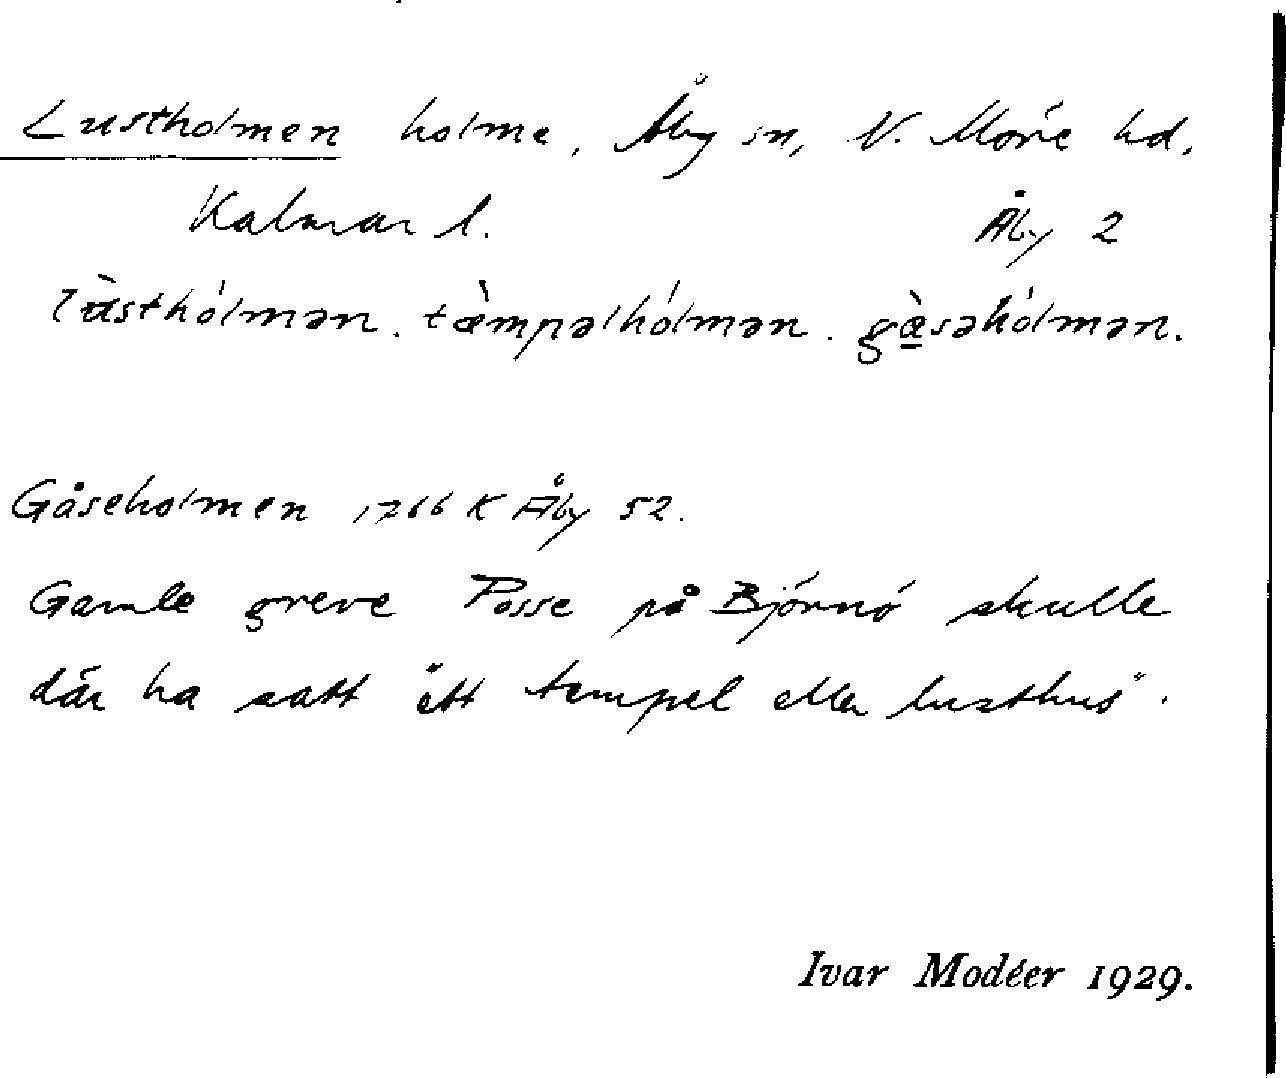 Lustholmen holme, Åby sn, N. Möre hd.
Kalmar l.
Åby 2
lùsthólmən. tæ̀mpəlhólmən. gæ̀səhólmən.
Gåseholmen 1766 K Åby 52.
Gamle greve Posse på Björnö skulle
där ha satt "ett tempel eller lusthus".
Ivar Modéer 1929.